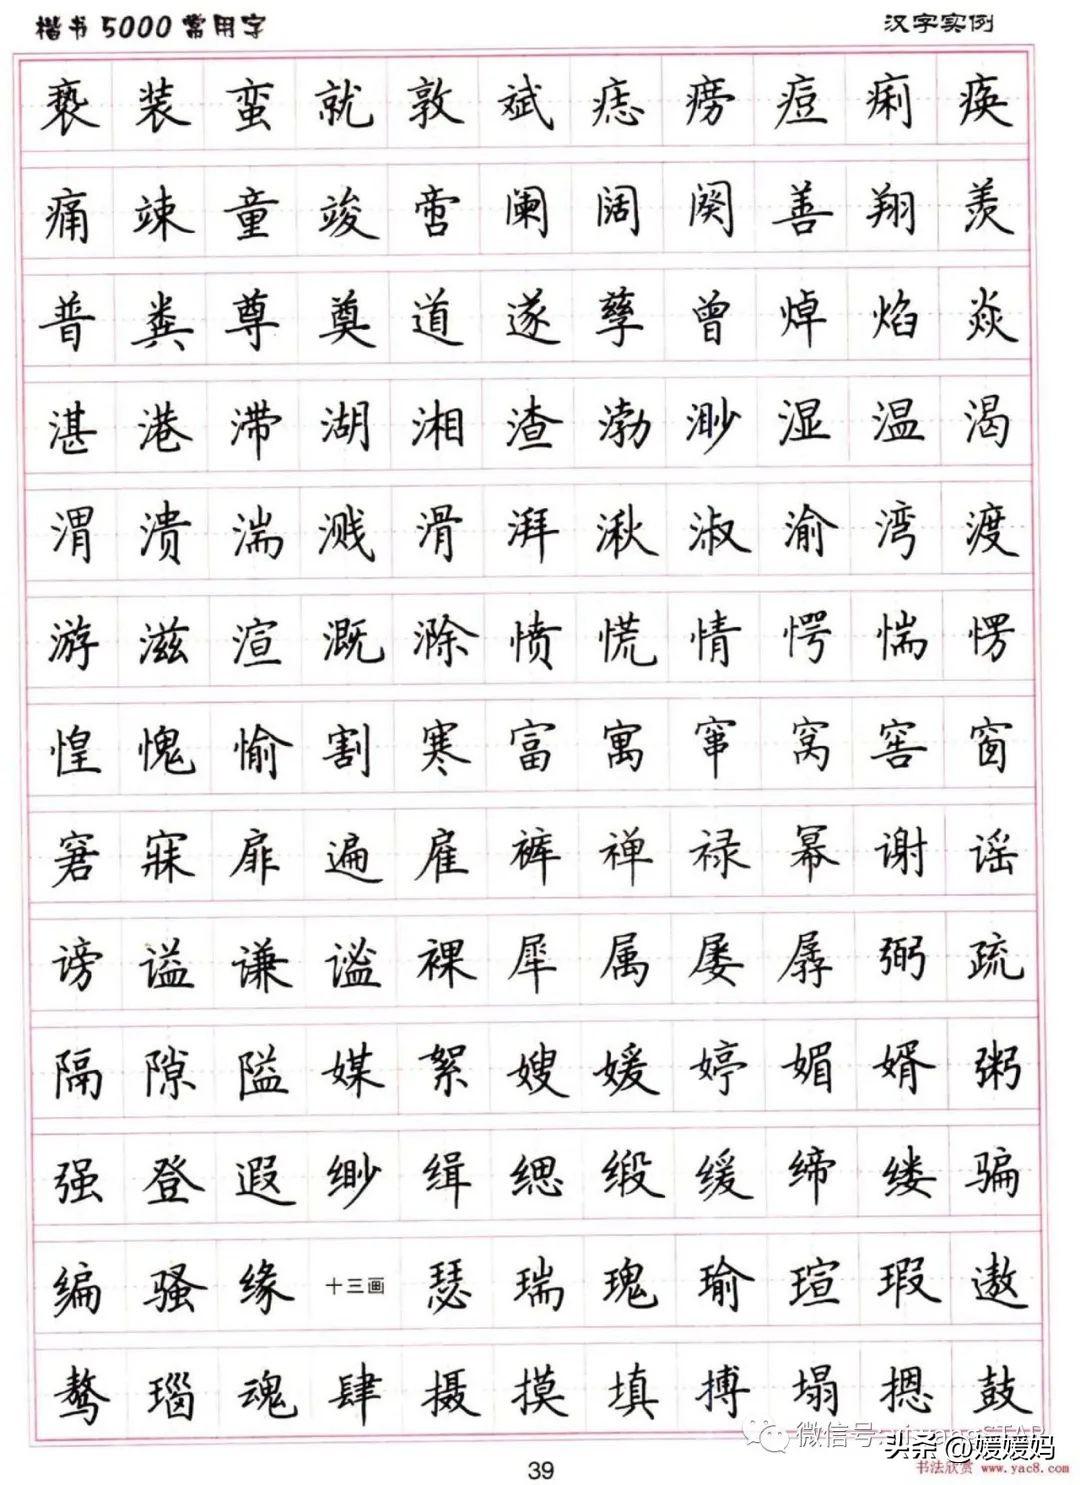 楷书5000常用字 汉字实例
亵装蛮就敦斌痣痨痘痢痪
痛竦童竣啻阑阔阕善翔羡
普粪尊奠道遂孳曾焯焰焱
湛港滞湖湘渣渤渺湿温渴
渭溃湍溅滑湃湫淑渝湾渡
游滋渲溉滁愤慌情愕惴愣
惶愧愉割寒富寓窜窝窖窗
窘寐扉遍雇裤禅禄幂谢谣
谤谥谦谧裸犀属屡孱弼疏
隔隙隘媒絮嫂媛婷媚婿粥
强登遐缈缉缌缎缓缔缕骗
编骚缘十三画瑟瑞瑰瑜瑄瑕遨
骜瑙魂肆摄摸填搏塌摁鼓
微信号
头条@媛媛妈
39
书法欣赏 www.yac8.com